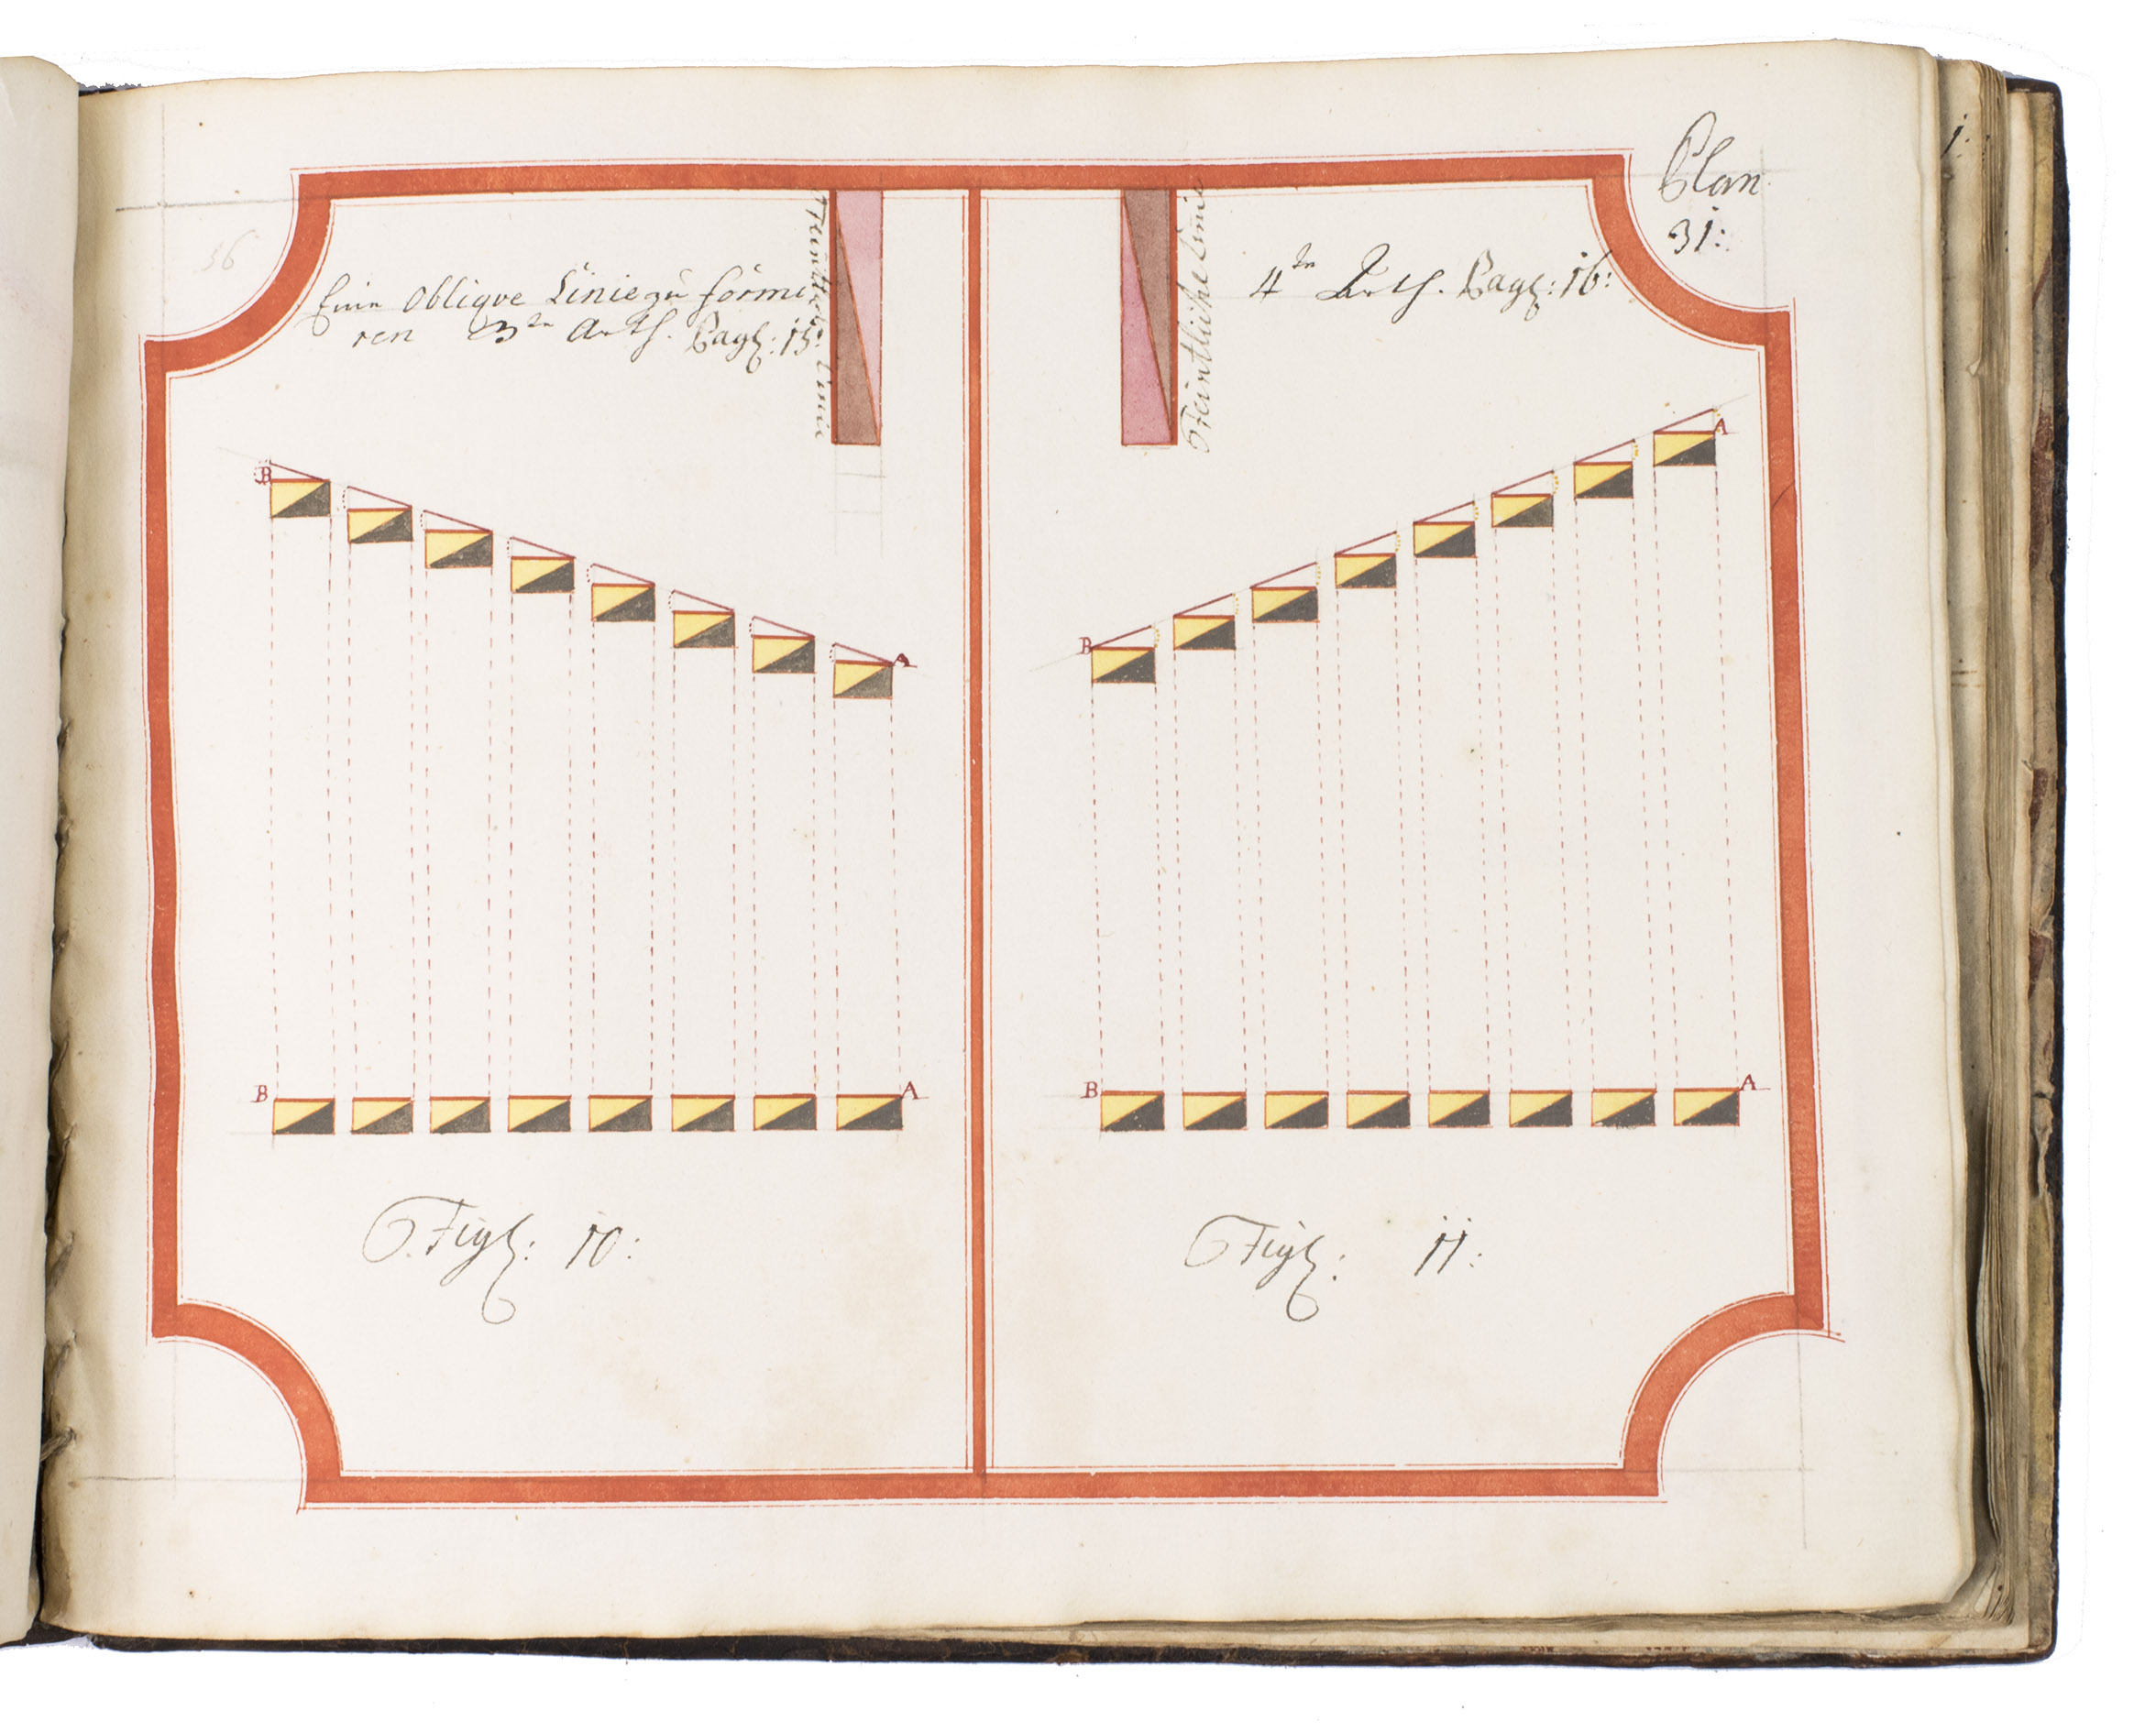 Plan
31:
36
Eine Oblique Linie zu formi
ren 3te Arth. Pag: 15:
Feintliche Linie
Feintliche Linie
4te Arth. Pag: 16:
B
A
B
A
B
A
B
A
Fig: 10:
Fig: 11:
1: